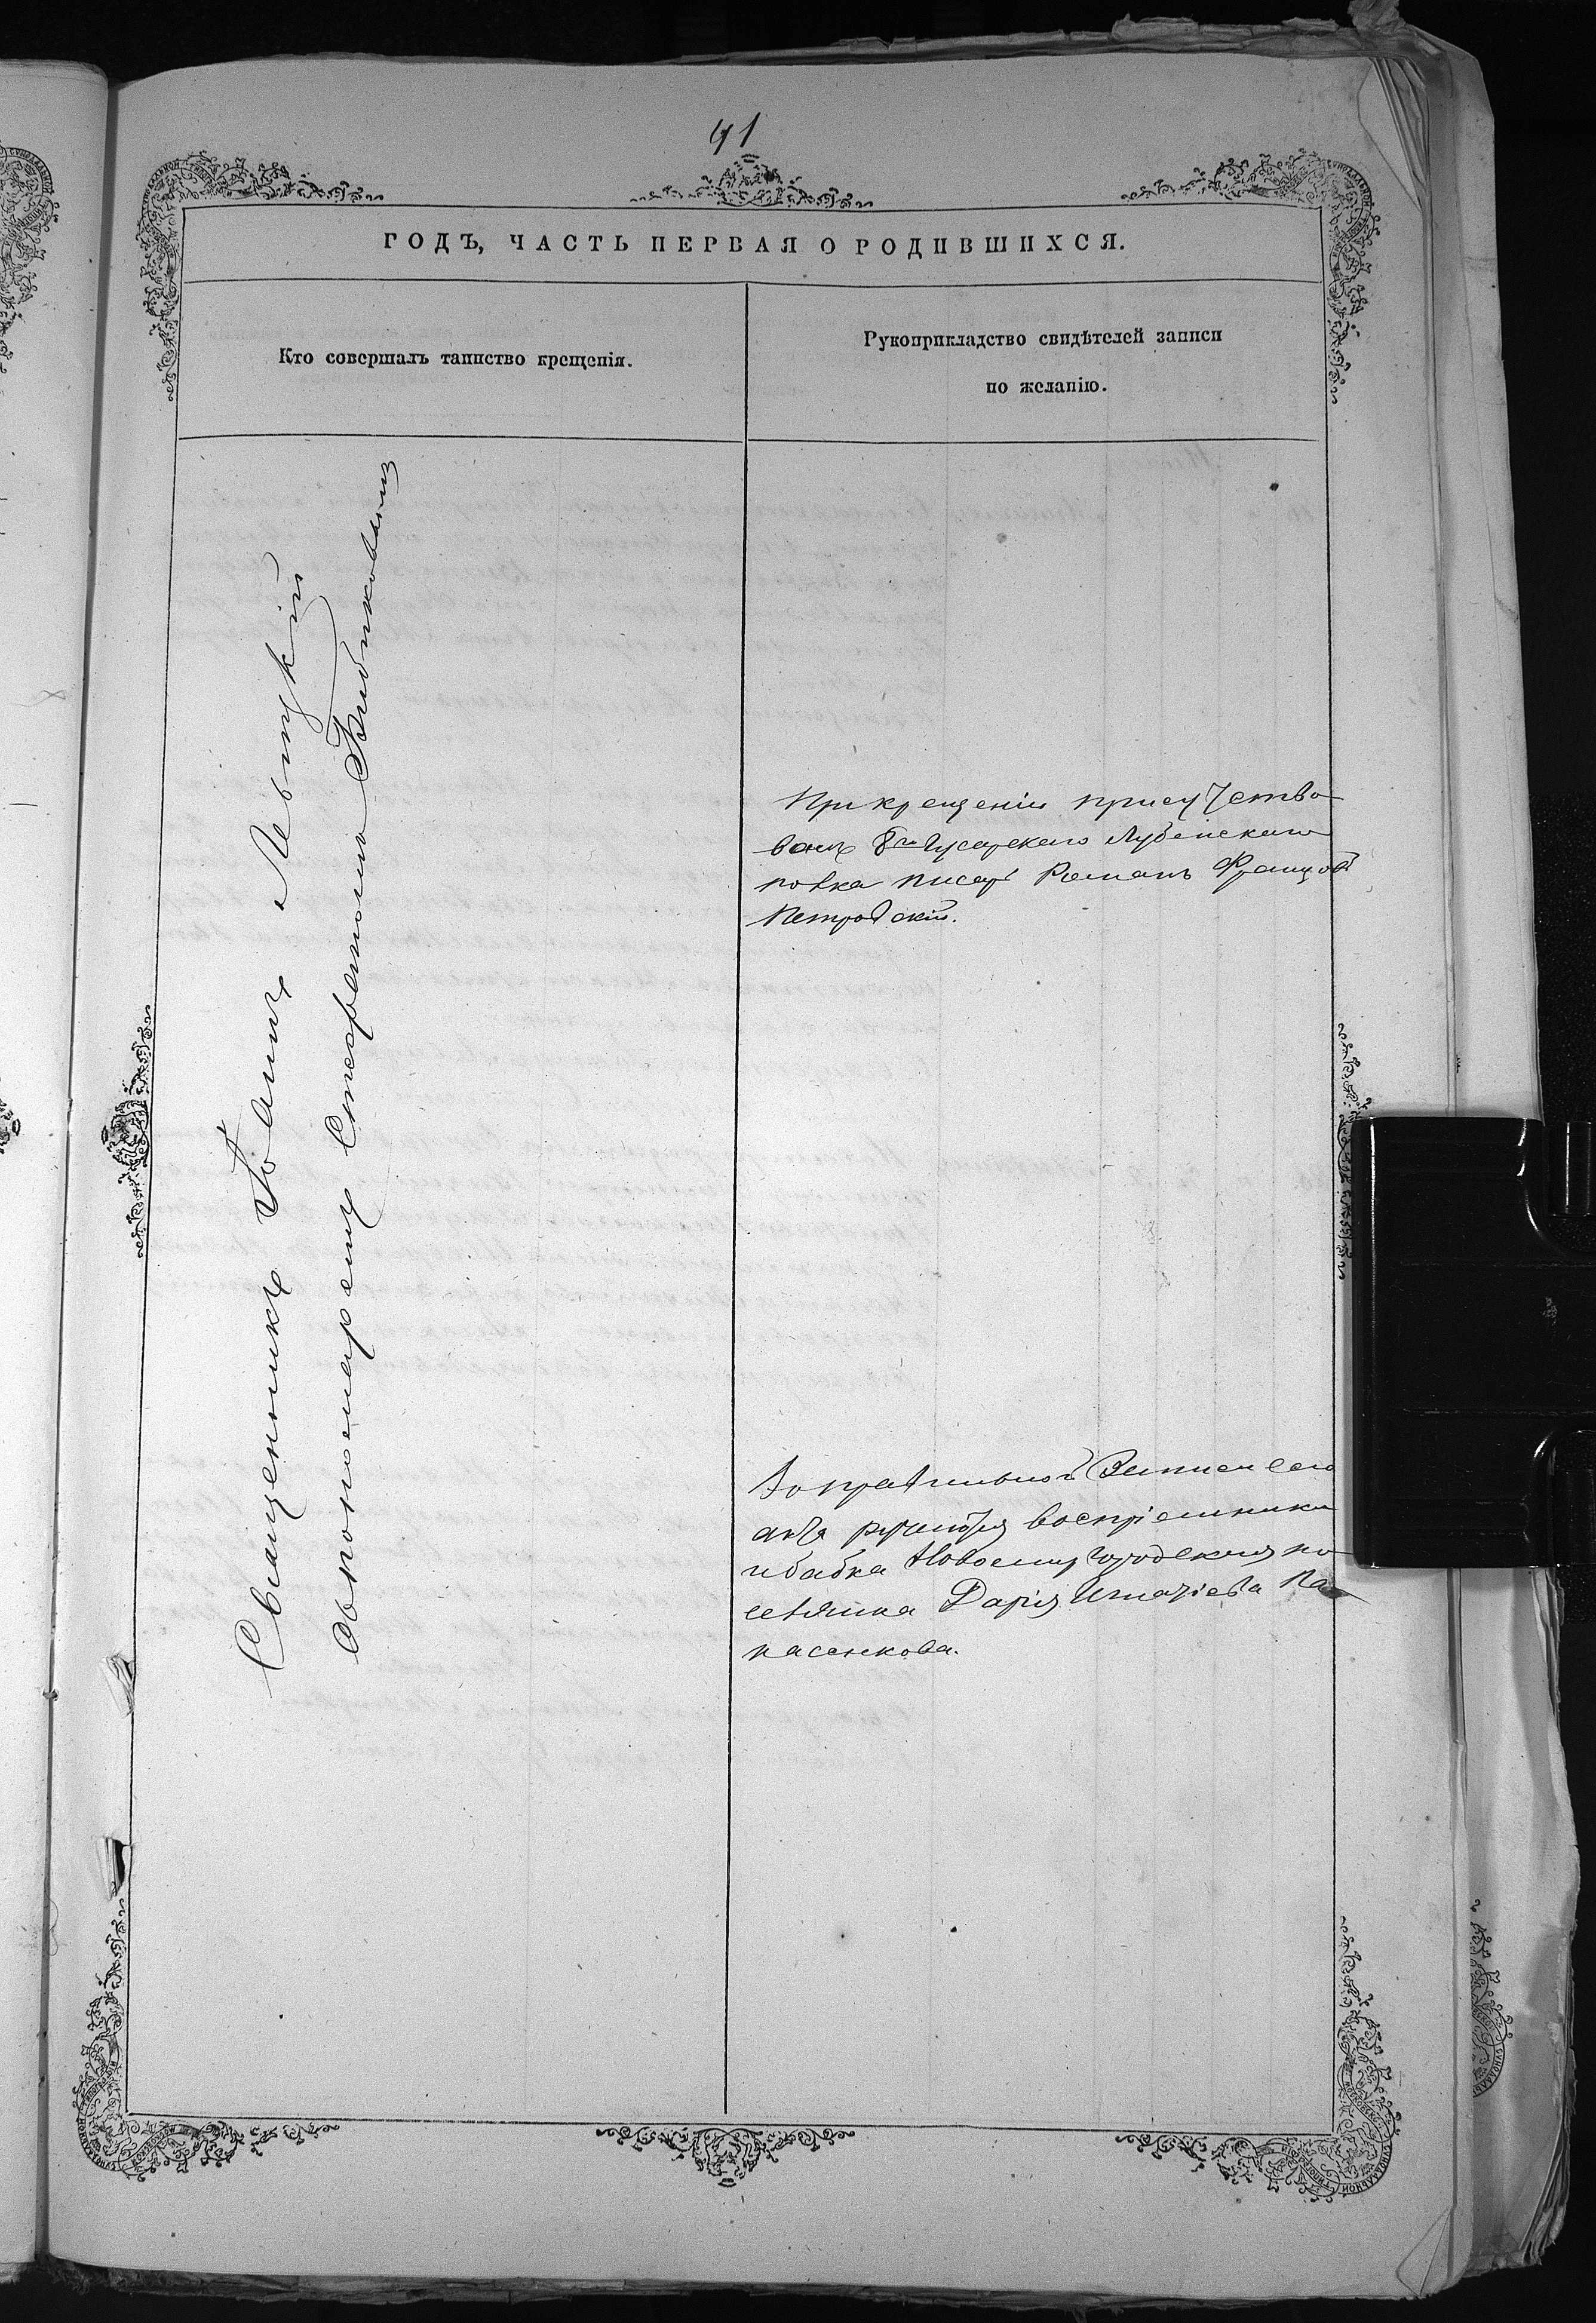 41
ГОДЪ, ЧАСТЬ ПЕРВАЯ О РОДИВШИХСЯ.
Кто совершалъ таинство крещенія.
Рукоприкладство свидѣтелей записи
по желанію.
Священникъ Іоаннъ Левицкій
съ пономаремъ Стефаномъ
При крещеніи присутство
валъ 8го Гусарскаго Лубенскаго
полка писарь Романъ Францовъ
Петровскій.
правильной Записи сего
акта ручаются воспріемники
и бабка Новомиргородская по
селянка Дарія Игнатіева Па
насенкова.